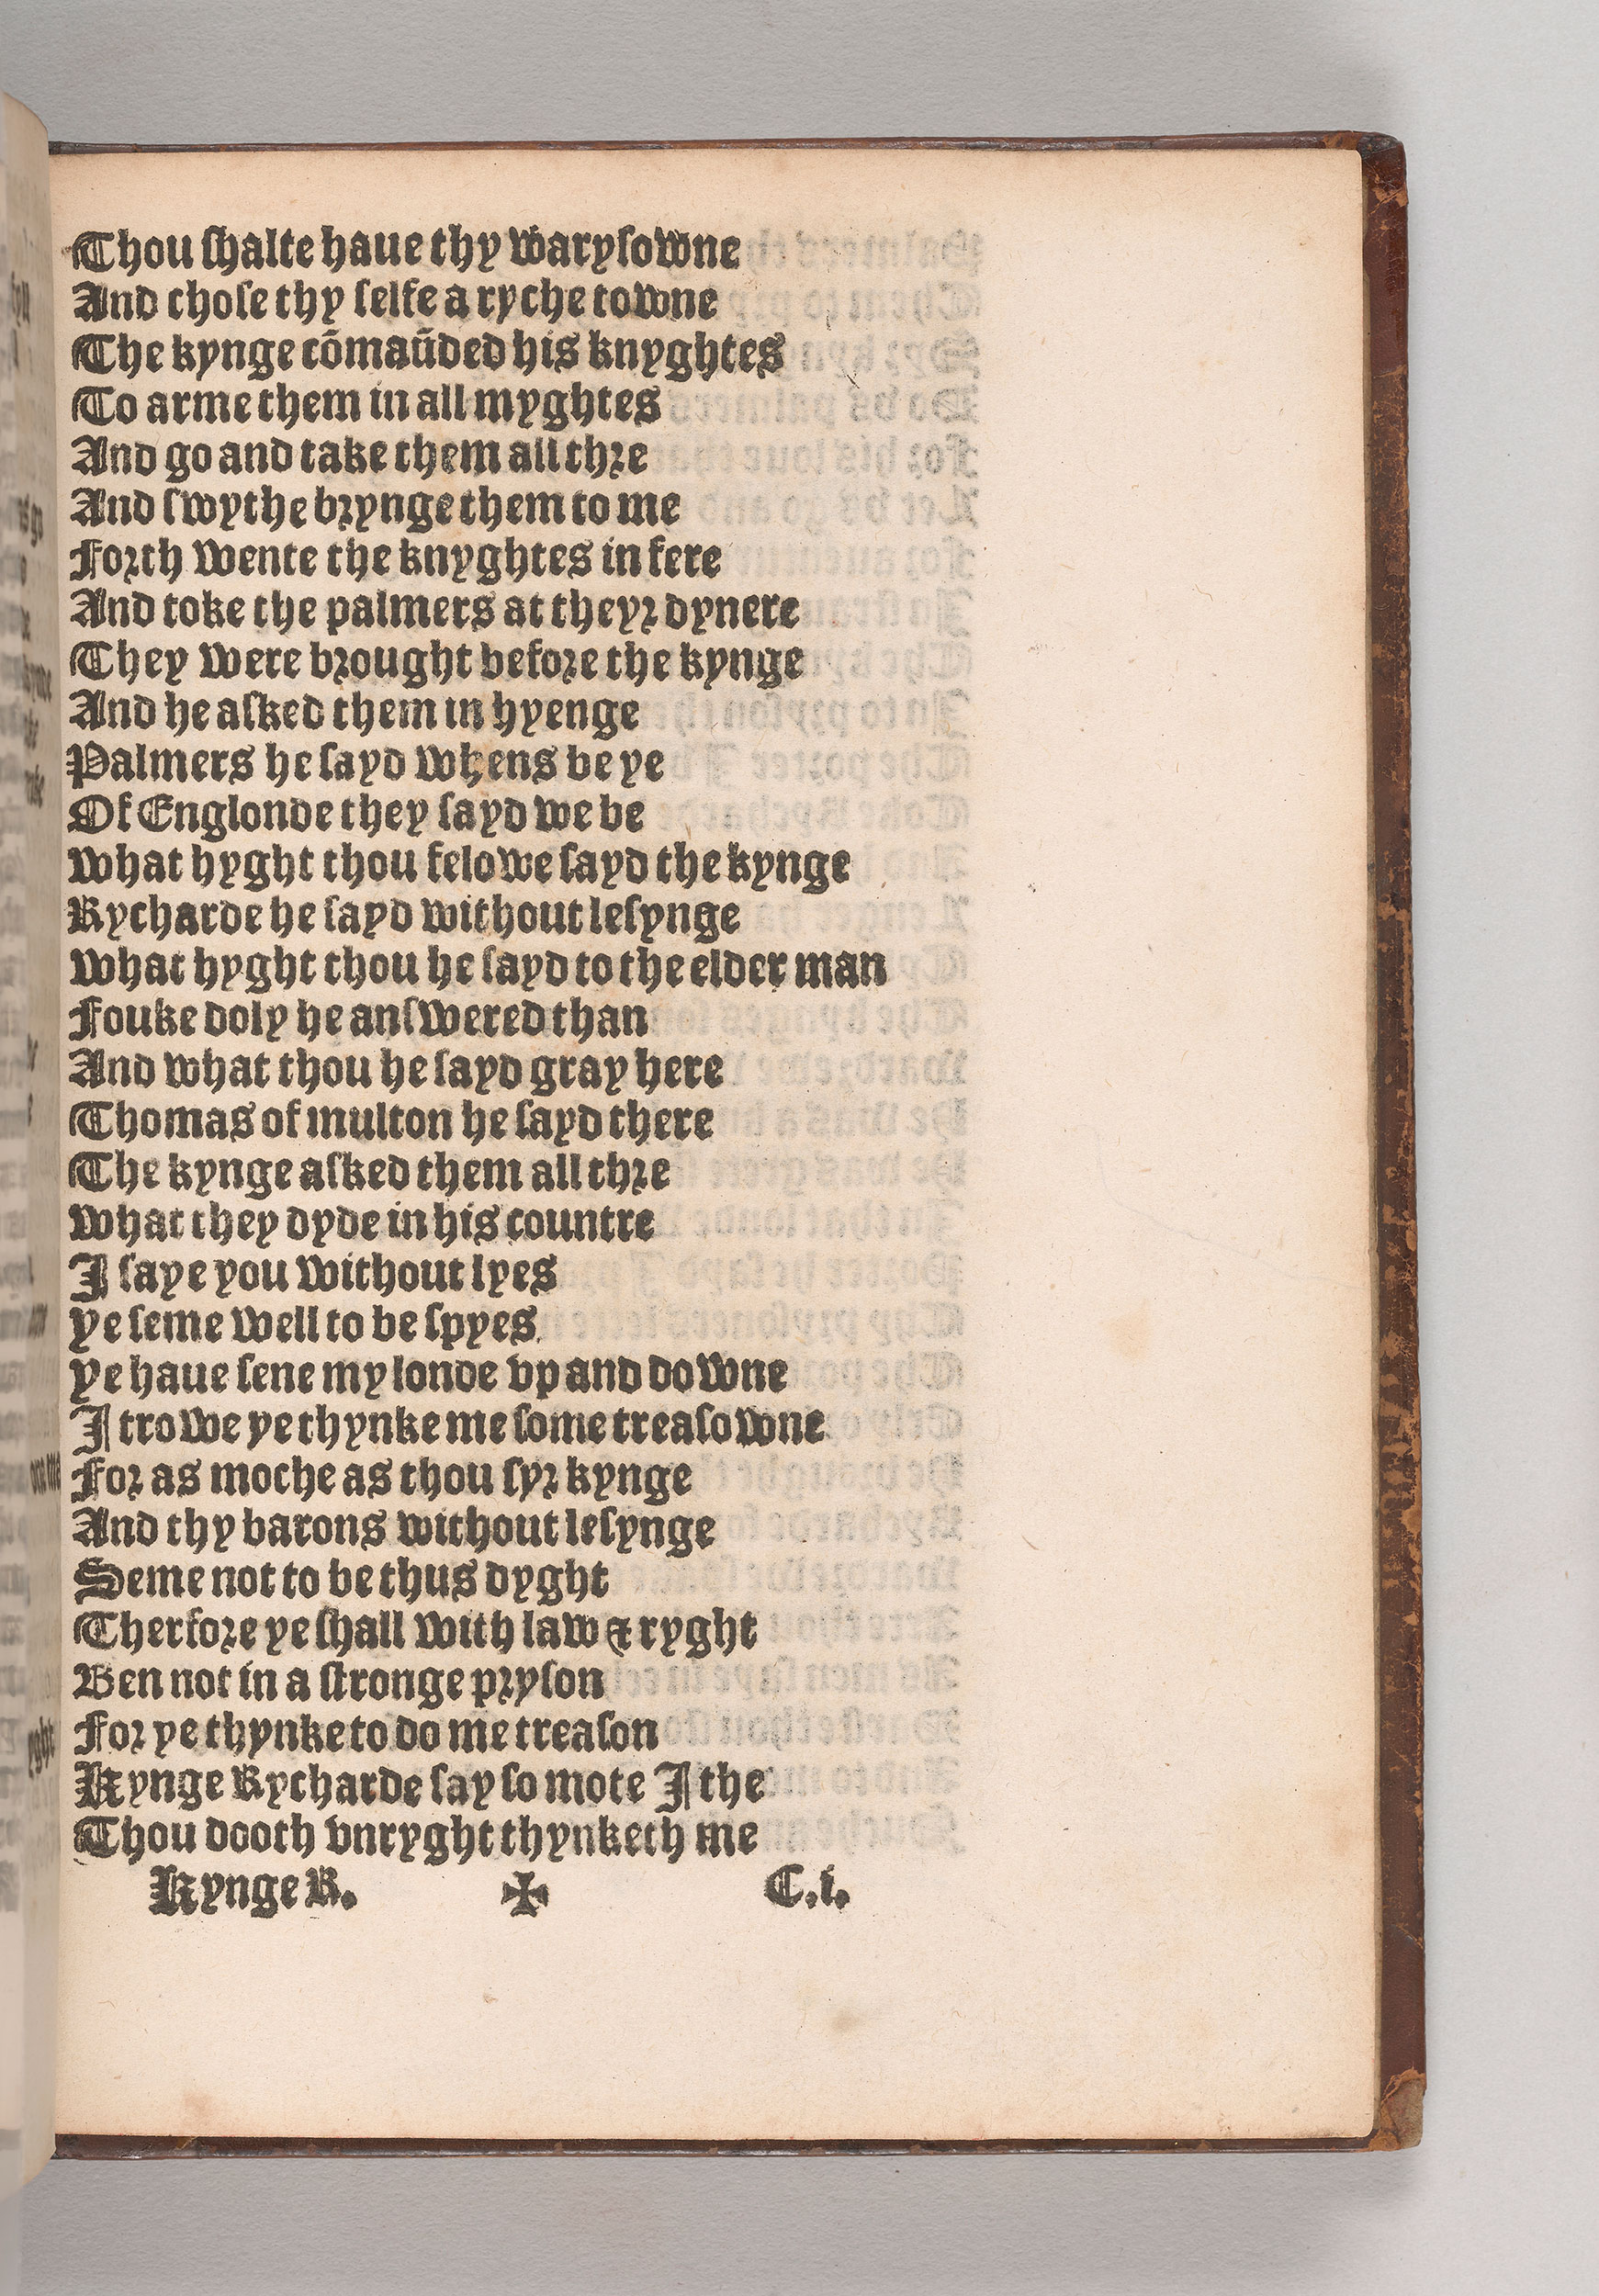 Thou shalte haue thy warysowne
And chose thy selfe a ryche towne
The kynge cõmaũded his knyghtes
To arme them in all myghtes
And go and take them all thre
And swythe brynge them to me
Forth wente the knyghtes in fere
And toke the palmers at theyr dynere
They were brought before the kynge
And he asked them in hyenge
Palmers he sayd whens be ye
Of Englonde they sayd we be
What hyght thou felowe sayd the kynge
Rycharde he sayd without lesynge
What hyght thou he sayd to the elder man
Fouke doly he answered than
And what thou he sayd gray here
Thomas of multon he sayd there
The kynge asked them all thre
What they dyde in his countre
I saye you without lyes
ye seme well to be spyes
ye haue sene my londe vp and downe
I trowe ye thynke me some treasowne
For as moche as thou syr kynge
And thy barons without lesynge
Seme not to be thus dyght
Therfore ye shall with law & ryght
Ben not in a stronge pryson
For ye thynke to do me treason
Kynge Rycharde say so mote I the
Thou dooth vnryght thynketh me
Kynge R. ✠ C.i.